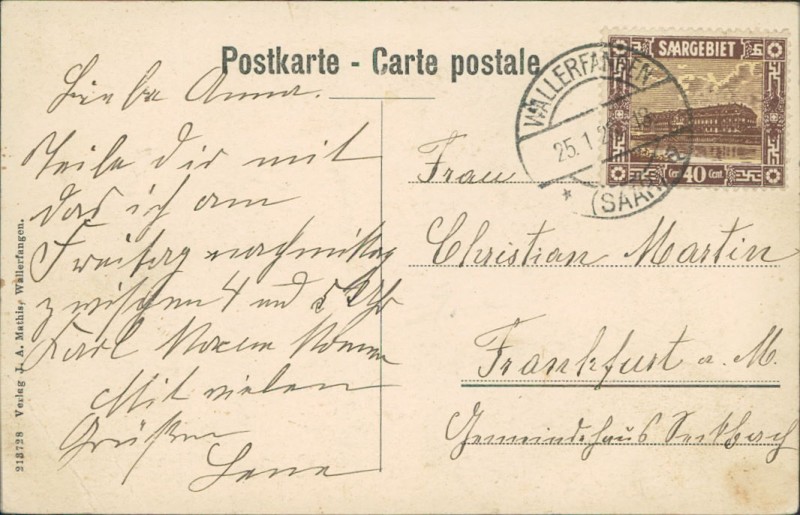 Postkarte - Carte postale
SAARGEBIET
Cent 40 Cent
WALLERFANGEN
25. 1. 2
(SAAR)
Liebe Anna.
Teile dir mit
das ich am
Freitag nachmittag
zwischen 4 und 5 Uhr
Mit vielen
Grüßen
Lena
Frau
Christian Martin
Frankfurt a. M.
Gemeindehaus Seckbach
213728 Verlag J. A. Mathis, Wallerfangen.